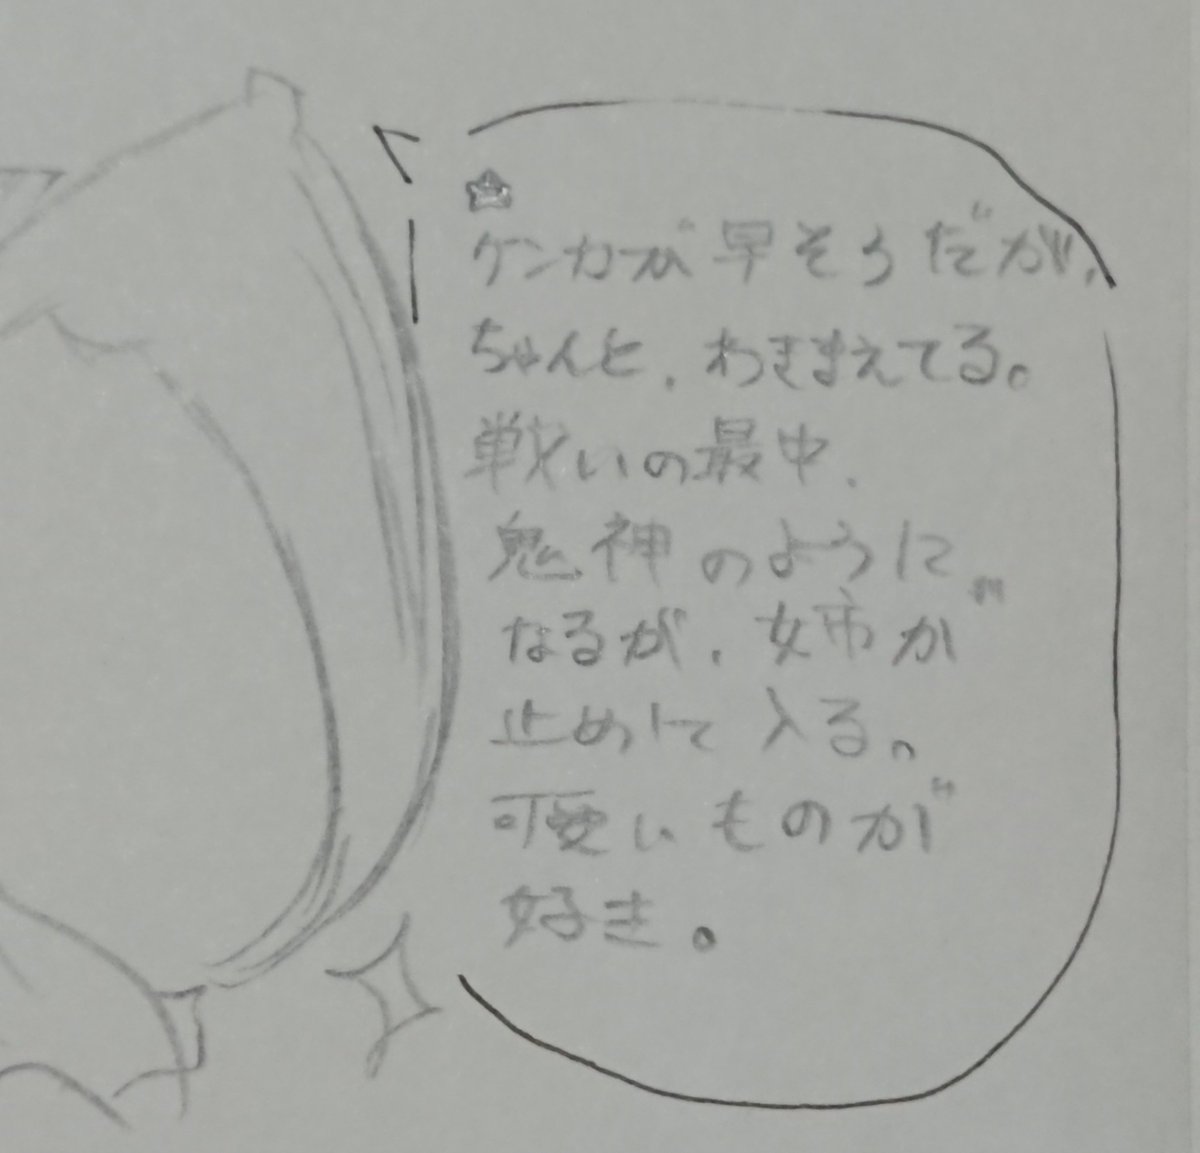 ☆
ケンカが早そうだが、
ちゃんと、わきまえてる。
戦いの最中、
鬼神のように
なるが、姉が
止めに入る。
可愛いものが
好き。